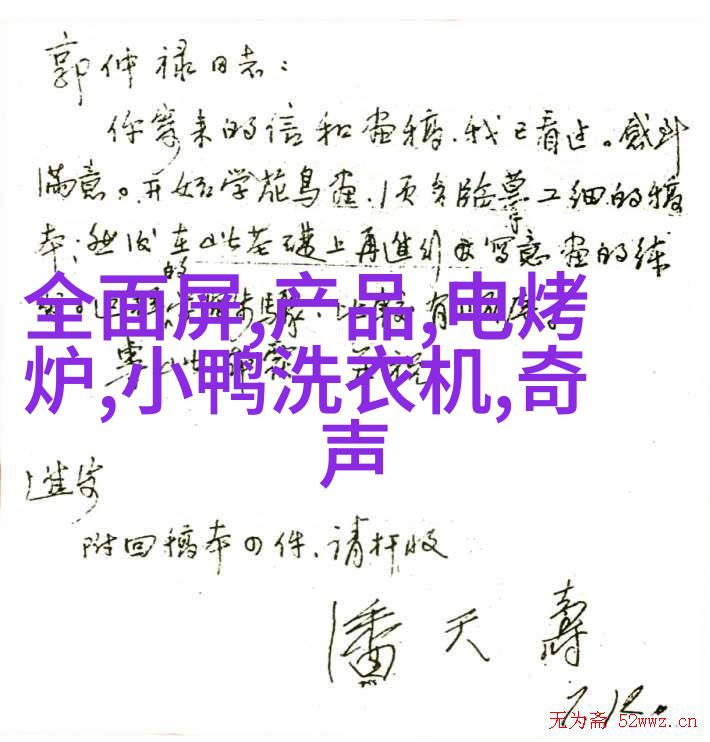 郭仲禄同志：
你寄来的信和画稿，我已看过。感到
满意。开始学花鸟画，须多临摹工细的稿
本；然后在此基础上再进行写意画的练
的
全面屏,产品,电烤
炉,小鸭洗衣机,奇
声
专此
进安
附回稿本四件，请检收
潘天寿
7.12.
无为斋 52wwz.cn